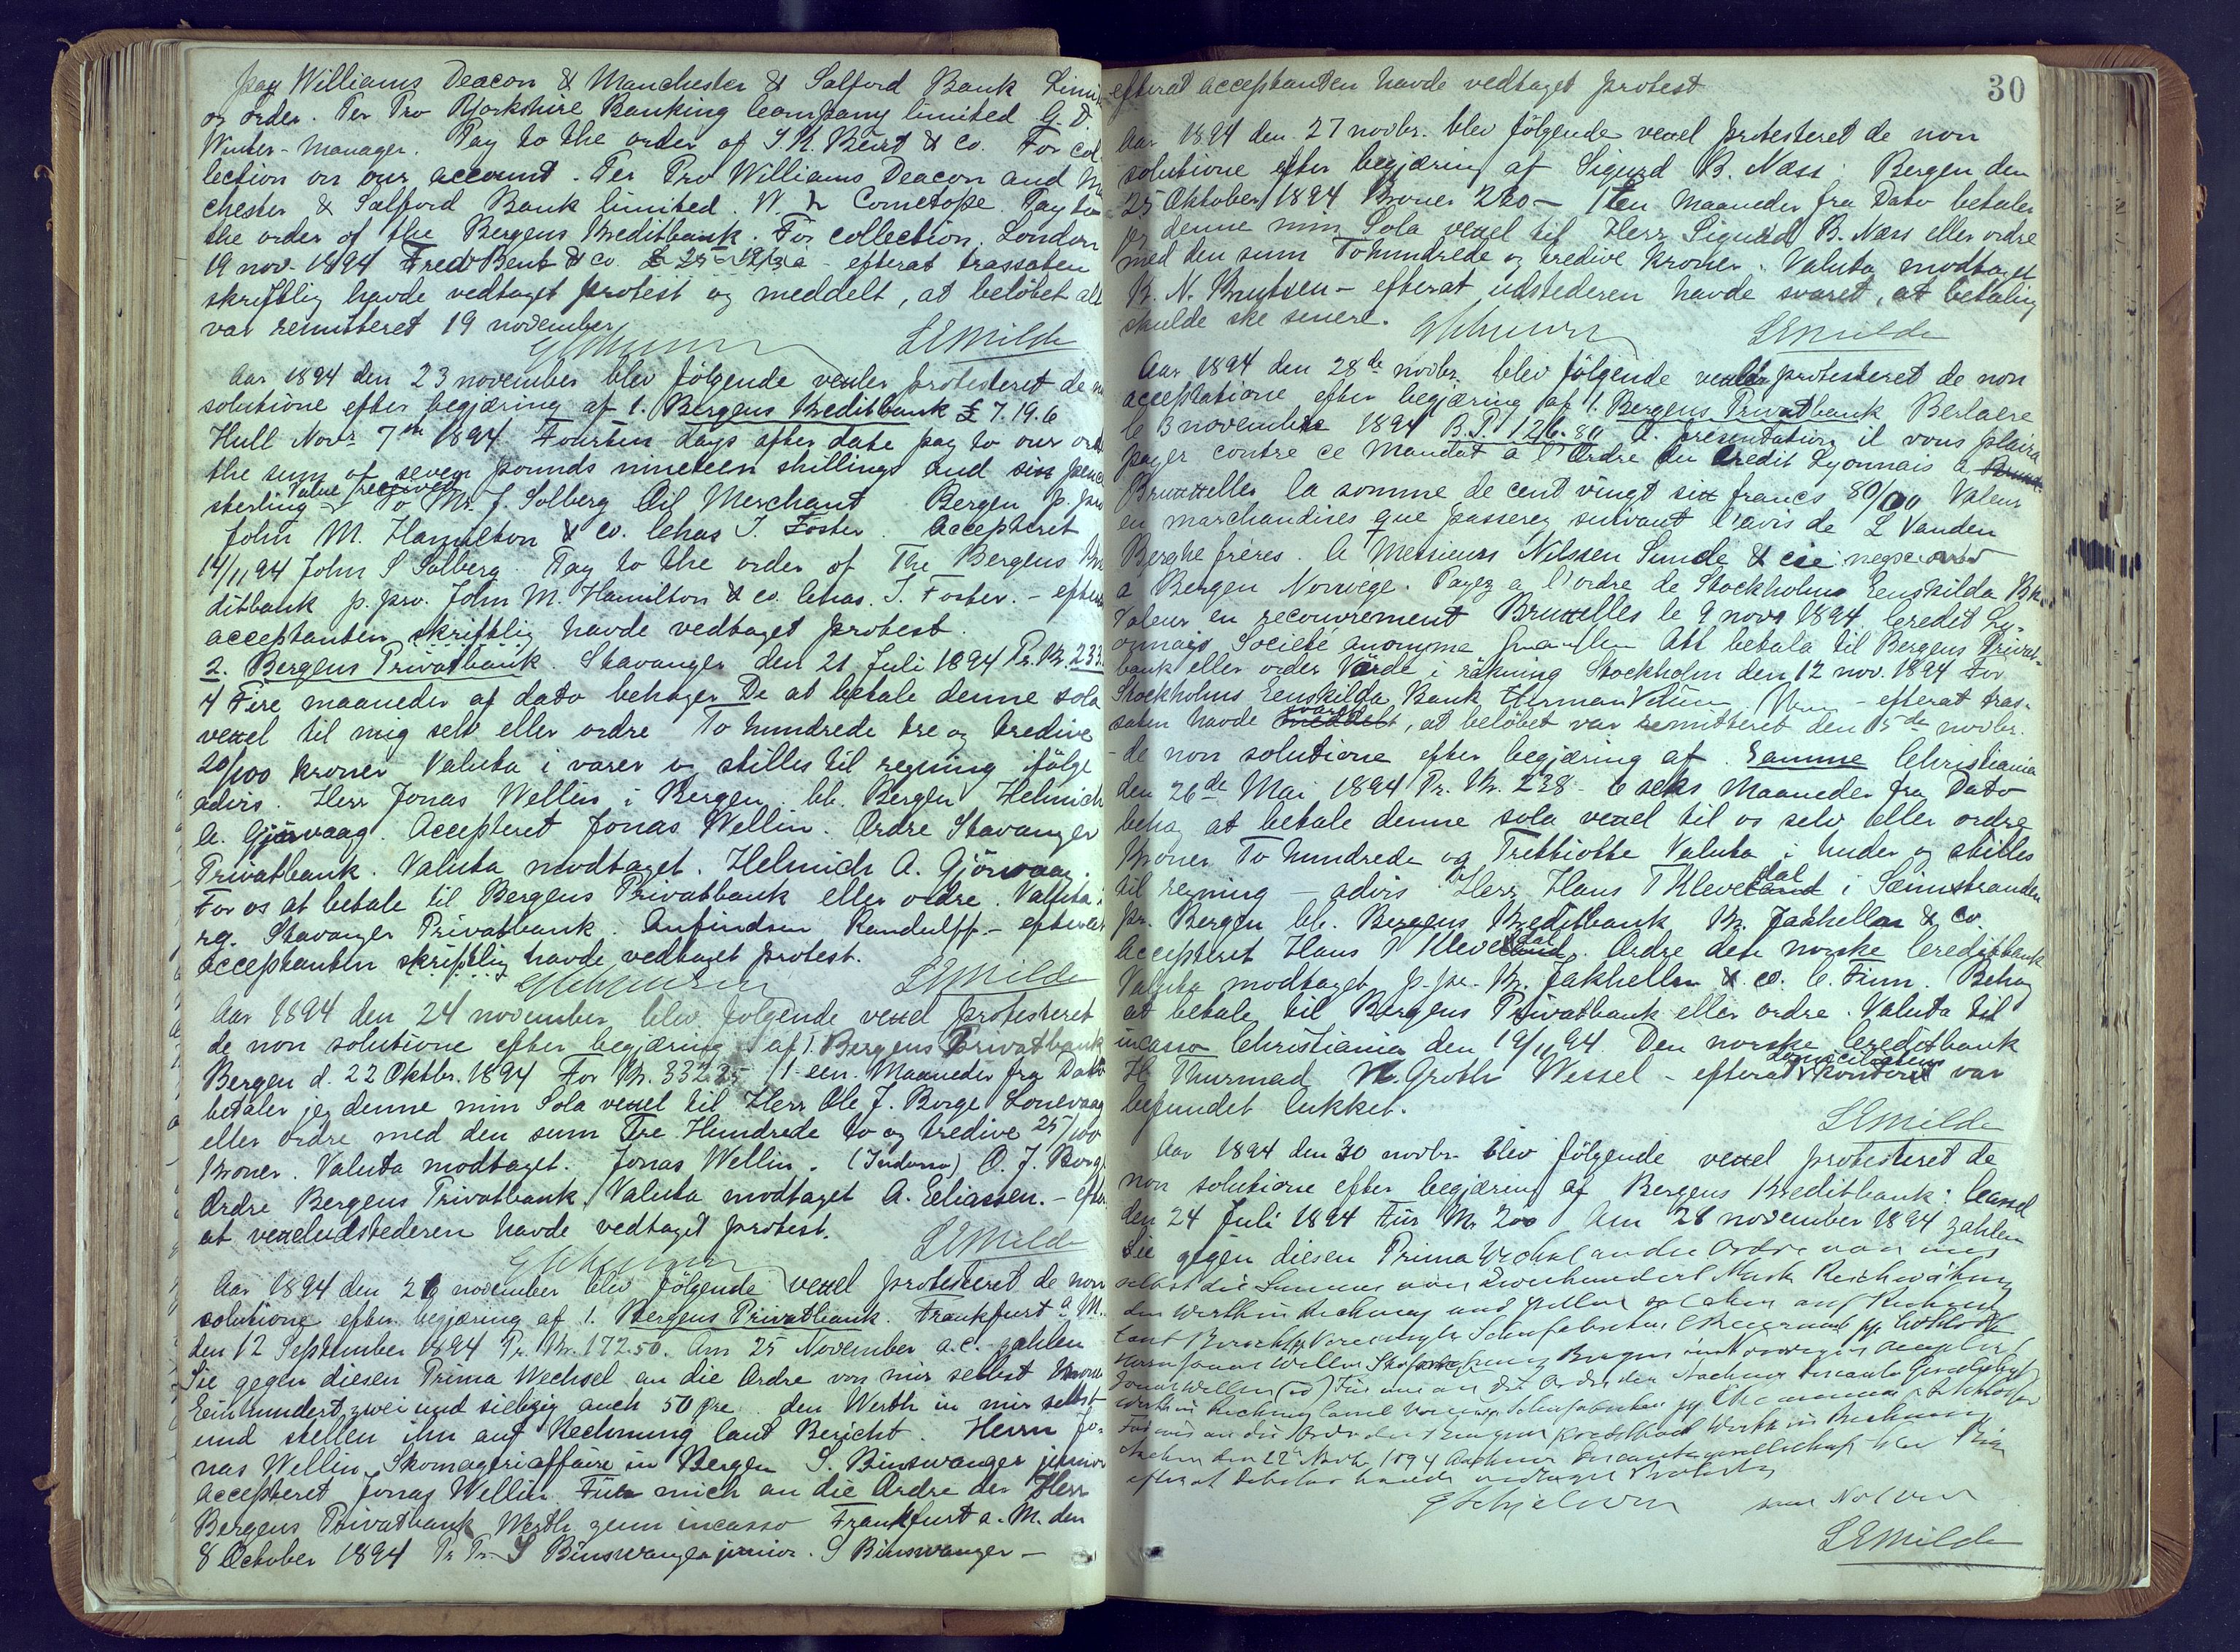 pay Williams Deacon & Manchester & Salford Bank Limit
or order. Per Pro Yorkshire Banking Company limited G. D.
Winter-Manager. Pay to the order of & Co. For col-
lection on our account. Per Pro Williams Deacon and M
chester & Salford Bank limited. W. Pay to
the order of the Bergens Kreditbank. For collection. London
19 nov. 1894 & Co. - efterat trassaten
skriftlig havde vedtaget protest og meddelt, at beløbet alt
var remitteret 19 november
LEMilde
Aar 1894 den 23 november blev følgende vexler protesteret de n
solutione efter begjæring af 1. Bergens Kreditbank £ 7.19.6
Hull Novr 7th 1894. Fourteen days after date pay to our ord
the sum of seven pounds nineteen shillings and six pence
sterling value received To Mr. J. Solberg Oil Merchant Bergen p. pro
John M. Hamilton & Co. Chas J. Foster. Accepteret
14/11 94 John S Solberg. Pay to the order of The Bergens Kre
ditbank p. pro. John M. Hamilton & Co. Chas. J. Foster. - efterat
acceptanten skriftlig havde vedtaget protest.
2. Bergens Privatbank. Stavanger den 21 Juli 1894 Pr. Kr. 233.
4 Fire maaneder af dato behager De at betale denne sola
vexel til mig selv eller ordre To hundrede tre og tredive
20/100 kroner Valuta i varer og stilles til regning ifølge
advis. Herr Jonas Wellin i Bergen. bb. Bergen Helmich
A. Gjørvaag. Accepteret Jonas Wellin. Ordre Stavanger
Privatbank. Valuta modtaget. Helmich A. Gjørvaag.
For os at betale til Bergens Privatbank eller ordre. Valuta i
rg. Stavanger Privatbank. Anfindsen Randulff. - efterat
acceptanten skriftlig havde vedtaget protest.
LEMilde
Aar 1894 den 24 november blev følgende vexel protesteret
de non solutione efter begjæring af 1. Bergens Privatbank
Bergen d. 22 Oktbr. 1894 For Kr. 332.25 /1- een. Maaneder fra Dato
betaler jeg denne min Sola vexel til Herr Ole J. Borge Lonevaag
eller ordre med den sum Tre Hundrede to og tredive 25/100
Kroner. Valuta modtaget. Jonas Wellin. O. J. Borge
Ordre Bergens Privatbank. Valuta modtaget A. Eliassen. - efter
at vexeludstederen havde vedtaget protest.
LEMilde
Aar 1894 den 26 november blev følgende vexel protesteret de non
solutione efter begjæring af 1. Bergens Privatbank. Frankfurt a M.
den 12 September 1894 Pr. Kr. 172.50. Am 25 November a.c. zahlen
Sie gegen diesen Prima Wechsel an die Ordre von mir selbst Kronen
Einhundert zwei und siebzig auch 50 Øre. den Werth in mir selbst
und stellen ihn auf Rechnung laut Bericht. Herrn Jo-
nas Wellin Skomageriaffaire in Bergen S. Binswanger junior
Accepteret Jonas Wellin. Für mich an die Ordre der Herr
Bergens Privatbank Werth zum incasso Frankfurt a. M. den
8 October 1894 Pr. Pr. S Binswanger junior. S Binswanger -
30
efterat acceptanten havde vedtaget protest
Aar 1894 den 27 novbr. blev følgende vexel protesteret de non
solutione efter begjæring af Sigurd B. Næss. Bergen den
25 Oktober 1894 Kroner 230 - 1 en Maaneder fra Dato betaler
jeg denne min Sola vexel til Herr Sigurd B. Næss eller ordre
med den sum Tohundrede og tredive Kroner. Valuta modtaget
K. N. - efterat udstederen havde svaret, at betaling
skulde ske senere.
LEMilde
Aar 1894 den 28de novbr. blev følgende vexler protesteret de non
acceptatione efter begjæring af 1. Bergens Privatbank Berlaere
le 3 novembre 1894 B.P. 126.80 A présentation il vous plaira
payer contre ce Mandat à l'Ordre du Credit Lyonnais a
Bruxelles la somme de cent vingt six francs 80/00 Valeur
en marchandises que passerez suivant l'avis de L Vanden
Berghe frères. A Messieurs Nilssen Sunde & cie
a Bergen Norvège. Payez a l'ordre de Stockholms Enskilda Bk.
Valeur en recouvrement Bruxelles le 9 novr 1894. Credit Ly-
onnais Societé anonyme Att betala til Bergens Privat-
bank eller order Värde i räkning Stockholm den 12 nov. 1894 For
Stockholms Enskilda Bank Herman - efterat tras-
saten havde svaret, at beløbet var remitteret den 15de novbr.
- de non solutione efter begjæring af Samme Christiania
den 26de Mai 1894 Pr. Kr. 238 - 6 seks Maaneder fra Dato
behag at betale denne sola vexel til os selv eller ordre
Kroner To hundrede og Trettiotte Valuta i huder og stilles
til regning - advis Herr Hans T Klevedal i Søimstranden
pr. Bergen bb. Bergens Kreditbank Kr. Jakhelln & Co.
Accepteret Hans T Klevedal. Ordre den norske Creditbank
Valuta modtaget p. pr. Kr. Jakhelln & Co. C. Finn. Behag
at betale til Bergens Privatbank eller ordre. Valuta til
incasso Christiania den 19/11 94. Den norske Creditbank
N. Groth Wessel - efterat domicilatens kontor var
befundet lukket.
LEMilde
Aar 1894 den 30 novbr. blev følgende vexel protesteret de
non solutione efter begjæring af Bergens Kreditbank: Cassel
den 24 Juli 1894 Für M. 200 Am 28 november 1894 zahlen
Sie gegen diesen Prima Wechsel an die Ordre von uns
selbst die Summe von Zweihundert Mark Reichswährung
den Werth in Rechnung und stellen solchen auf Rechnung
laut Bericht
Jonas Wellin Bergen in Norwegen
Jonas Wellin Für uns an die Ordre der Aachener Disconto Gesellschaft
Werth in Rechnung
Für uns an die Ordre der Bergens Kreditbank Werth in Rechnung
Aachen den 22 Novb. 1894 Aachener Discontogesellschaft
efterat havde vedtaget Protest
LEMilde